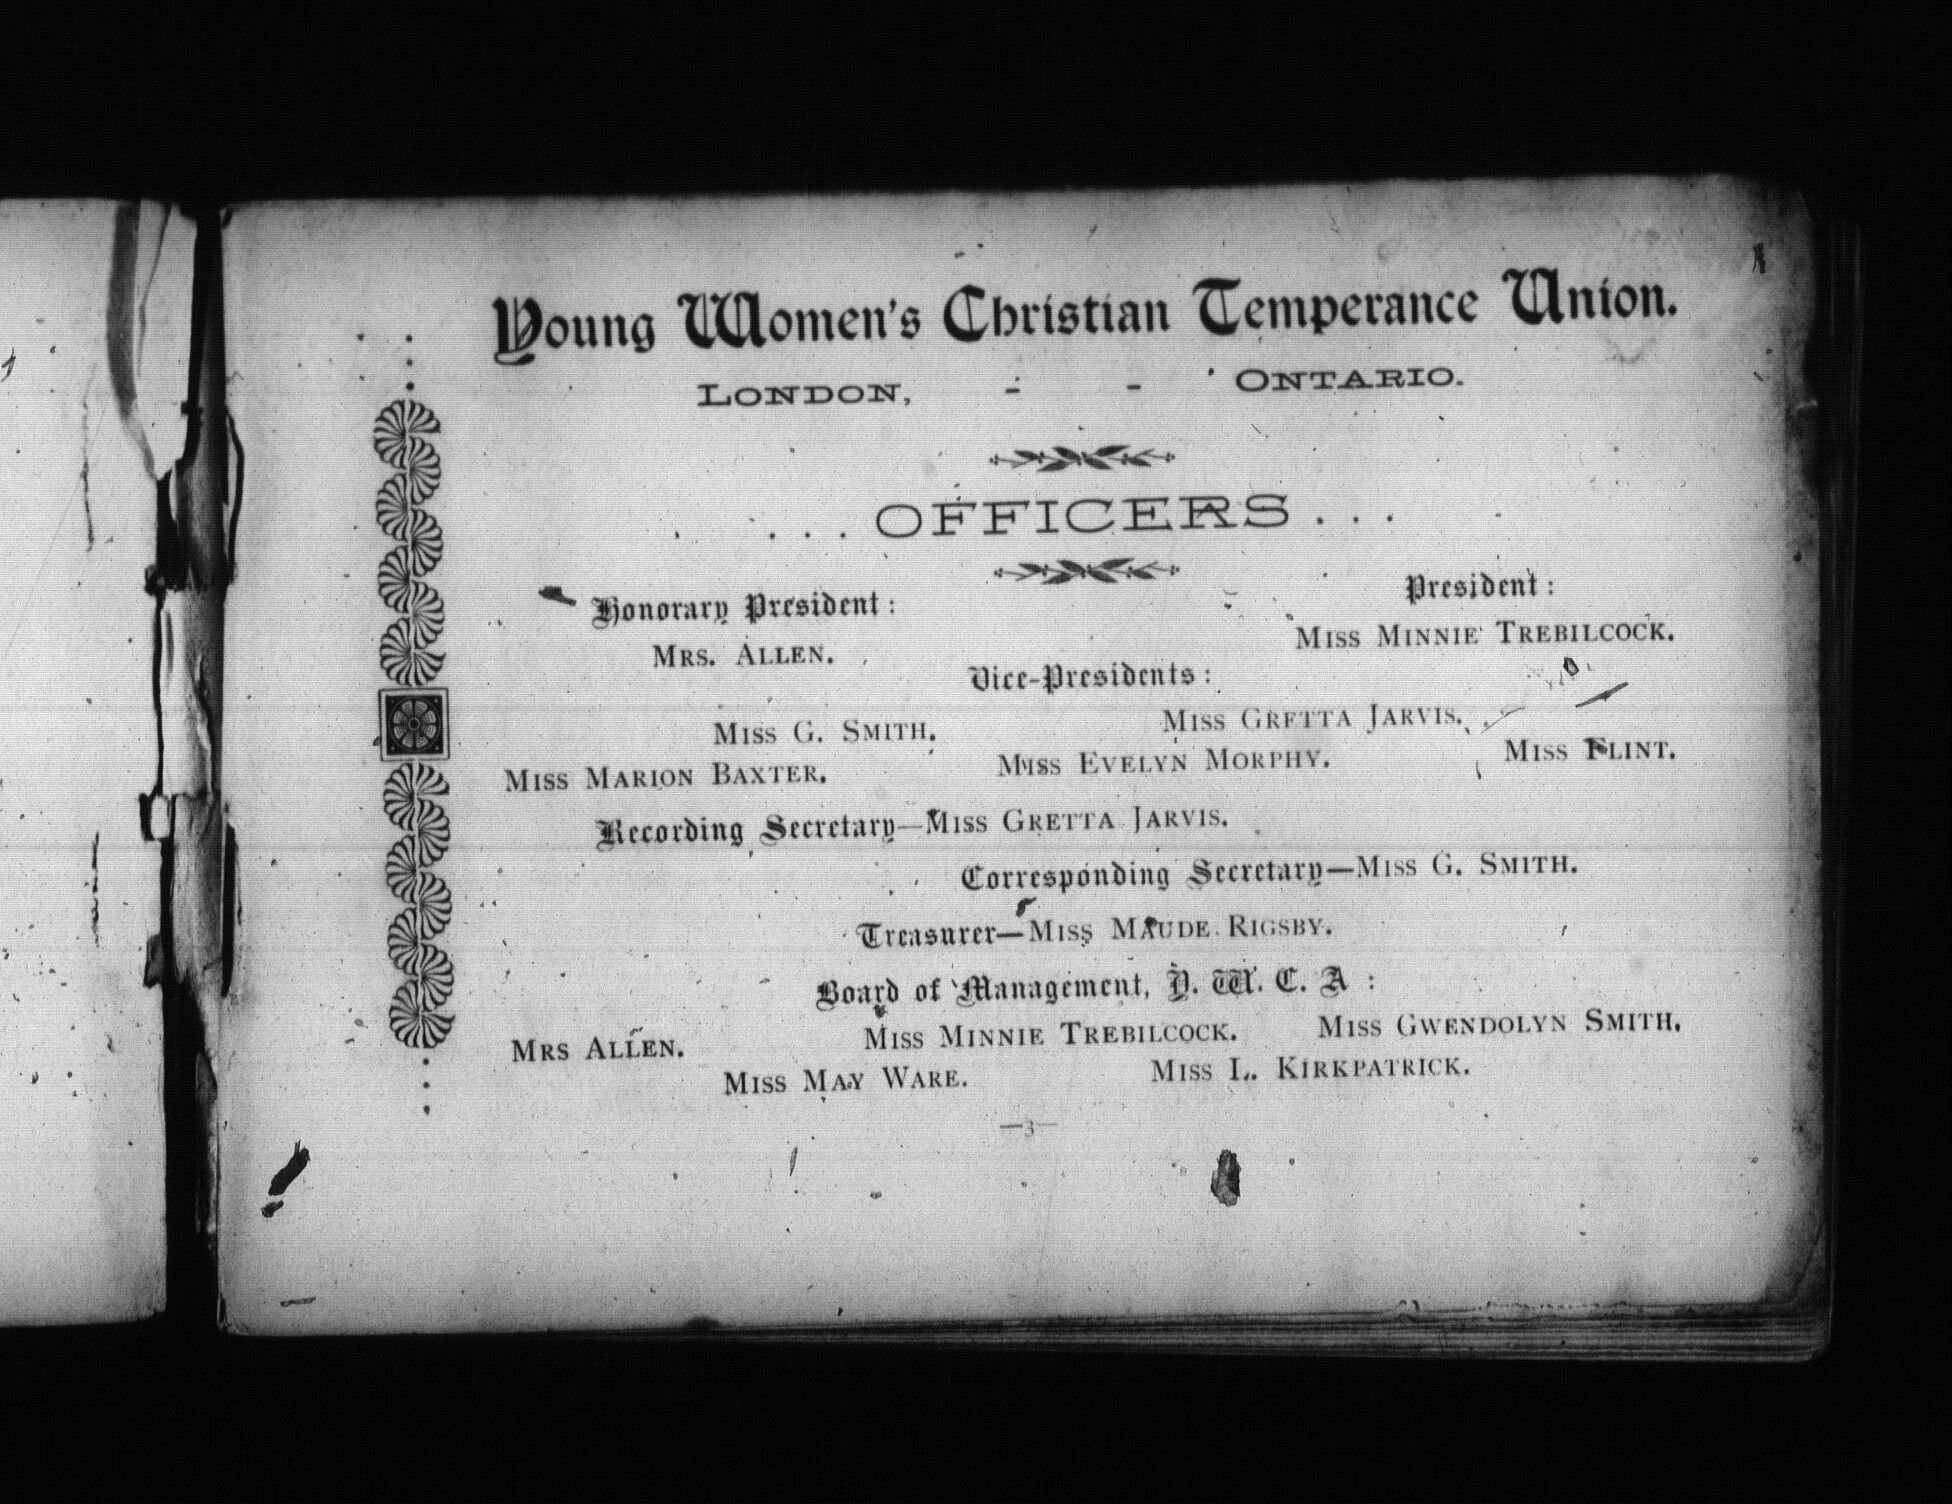 Young Women's Christian Temperance Union.
LONDON, - - ONTARIO.
. . . OFFICERS . . .
Honorary President: President:
MRS. ALLEN. MISS MINNIE TREBILCOCK.
Vice-Presidents:
MISS G. SMITH. MISS GRETTA JARVIS.
MISS MARION BAXTER. MISS EVELYN MORPHY. MISS FLINT.
Recording Secretary—MISS GRETTA JARVIS.
Corresponding Secretary—MISS G. SMITH.
Treasurer—MISS MAUDE RIGSBY.
Board of Management, Y. W. C. A :
MRS ALLEN. MISS MINNIE TREBILCOCK. MISS GWENDOLYN SMITH.
MISS MAY WARE. MISS L. KIRKPATRICK.
—3—